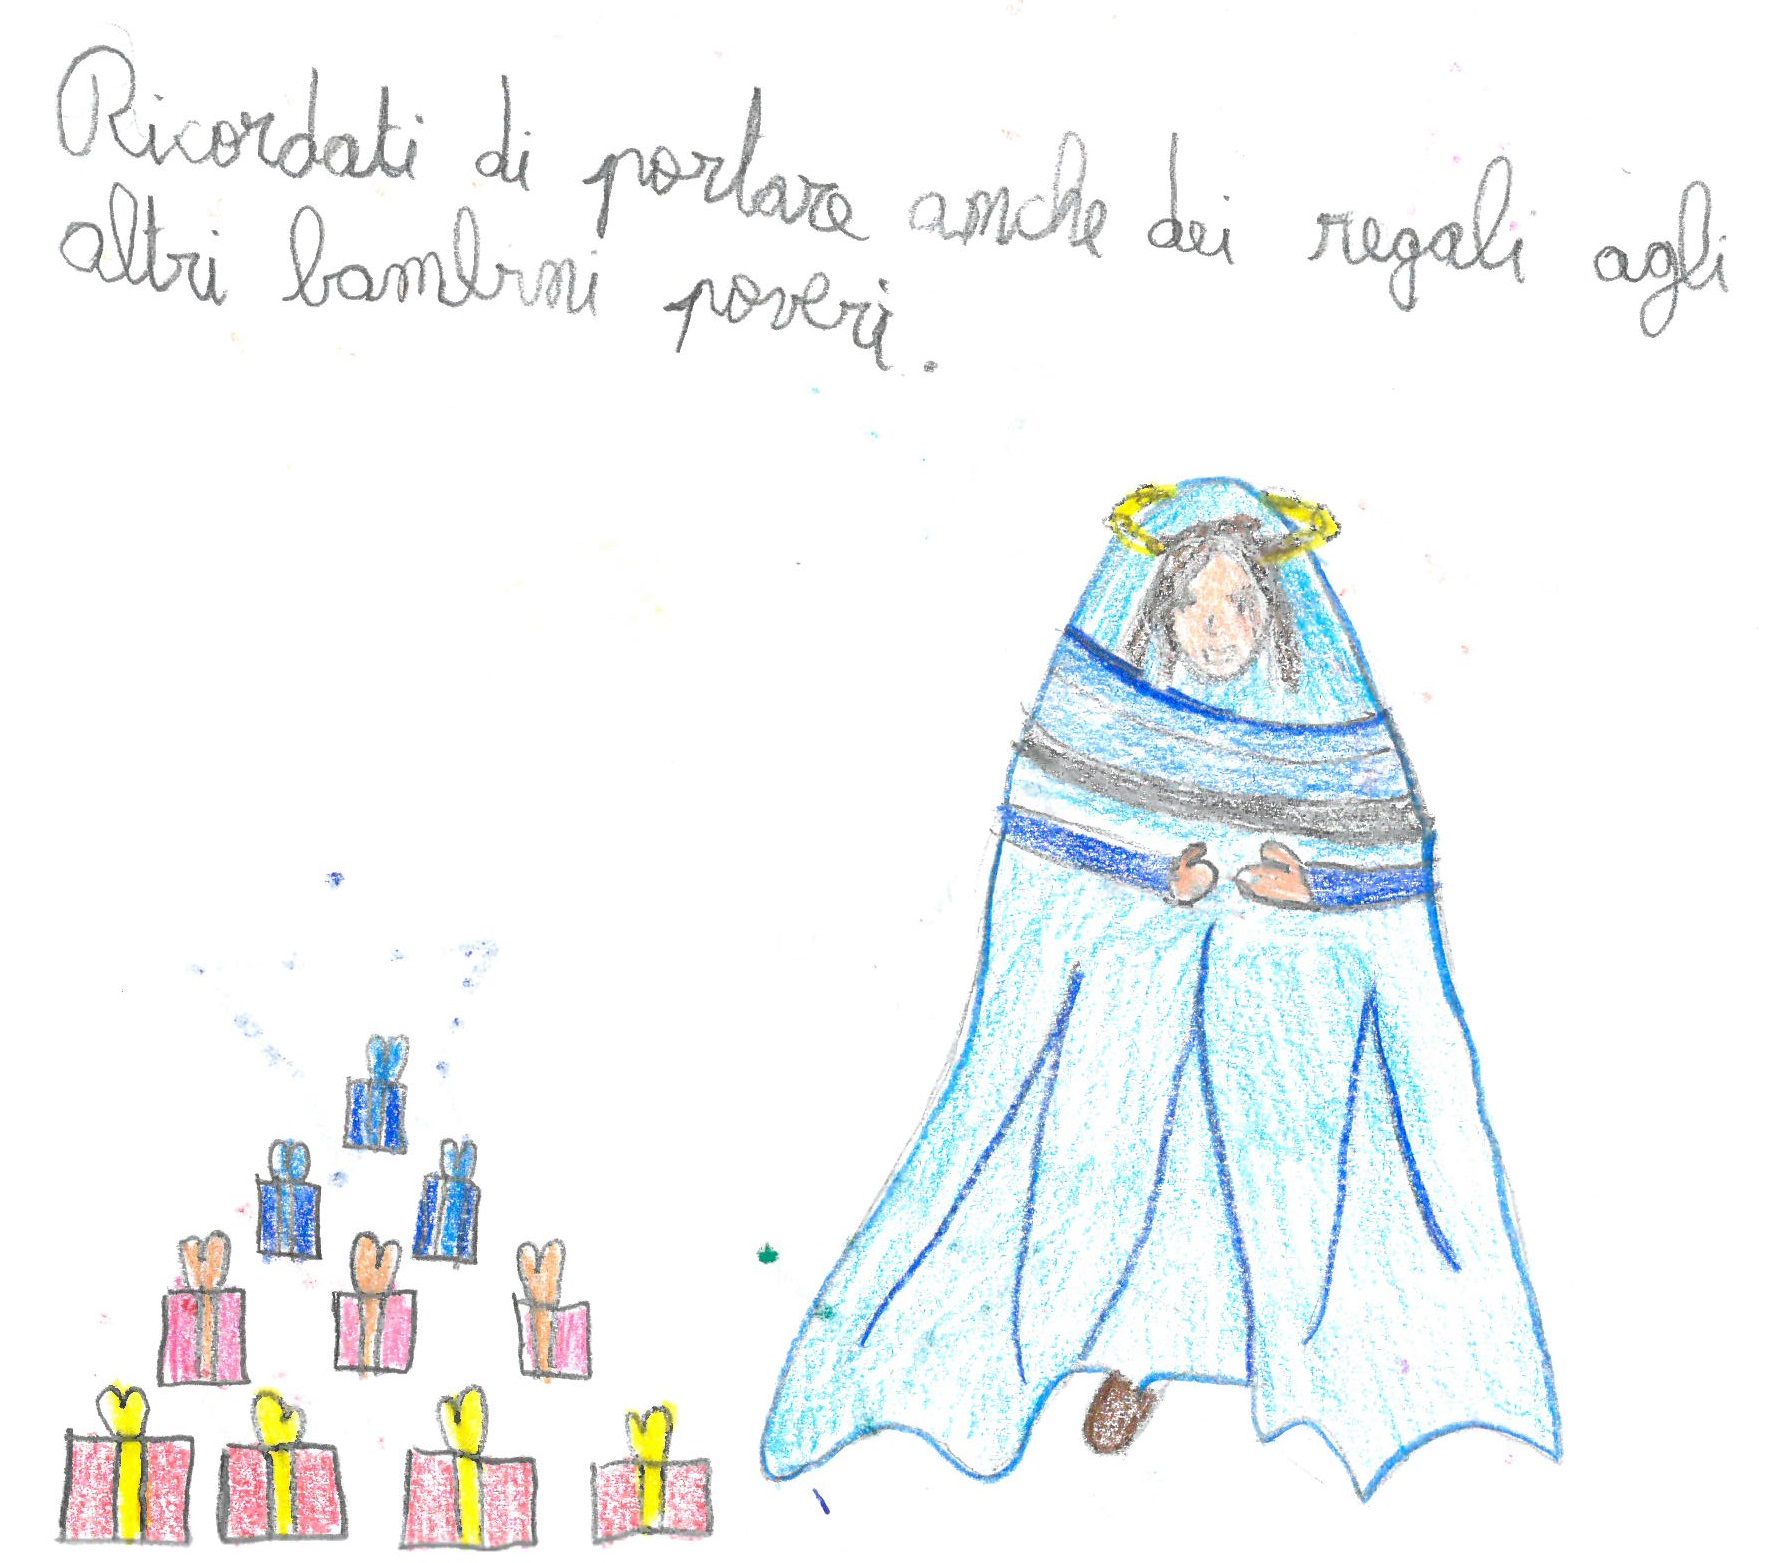 Ricordati di portare anche dei regali agli
altri bambini poveri.